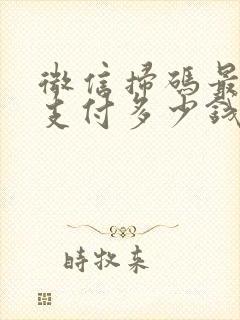 微信掃碼最
支付多少錢
時牧来